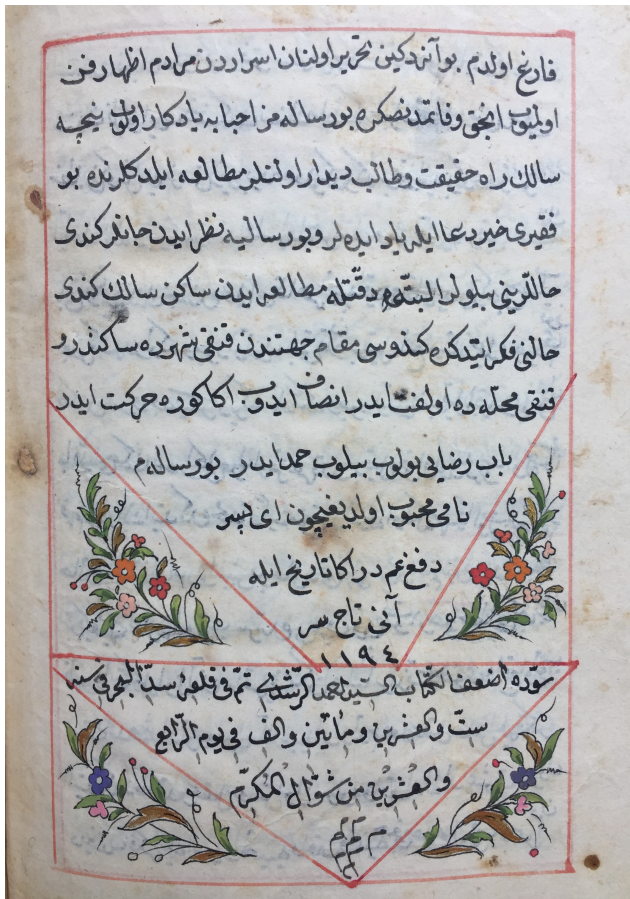 فارغ اولدم بو آنه دكین تحریر اولنان اسراردن مرادم اظهار فن
اولمیوب انجق وفاتمدنصكره بو رساله مز احبابه یادكار اولوب نیچه
سالك راه حقیقت وطالب دیدار اولنلر مطالعه ایلدكلرنده بو
فقیری خیر دعا ایله یاد ایده لر وبو رسالیه نظر ایدن جانلر كندی
حاللرینی بیلورلر البته دقتله مطالعه ایدن ساكن سالك كندی
حالنی فكر ایتدكده كندوسی مقام جهتندن قنقی شهرده ساكندر و
قنقی محله ده اولفت ایدر انصاف ایدوب اكا كوره حركت ایدر
باب رضایی بولوب بیلوب حمد ایدر بو رساله م
نامی محبوب اولدیغیچون ای پسر
دفع غم در اكا تاریخ ایله
آنی تاج سر
١١٩٤
سوّده اضعف الكتّاب السید احمد الرّشدی تمّ فی قلعهٔ سدّ البحر فی سنه
ستّ والعشرین ومأتین والف فی یوم الرّابع
والعشرین من شوّال المكرّم
م م م
م م
م